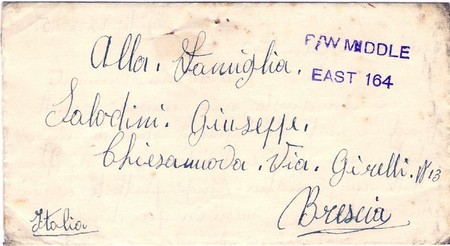 P/W MIDDLE
EAST 164
Alla. Famiglia.
Salodini. Giuseppe.
Chiesanuova. Via. Girelli. N 13
Brescia
Italia